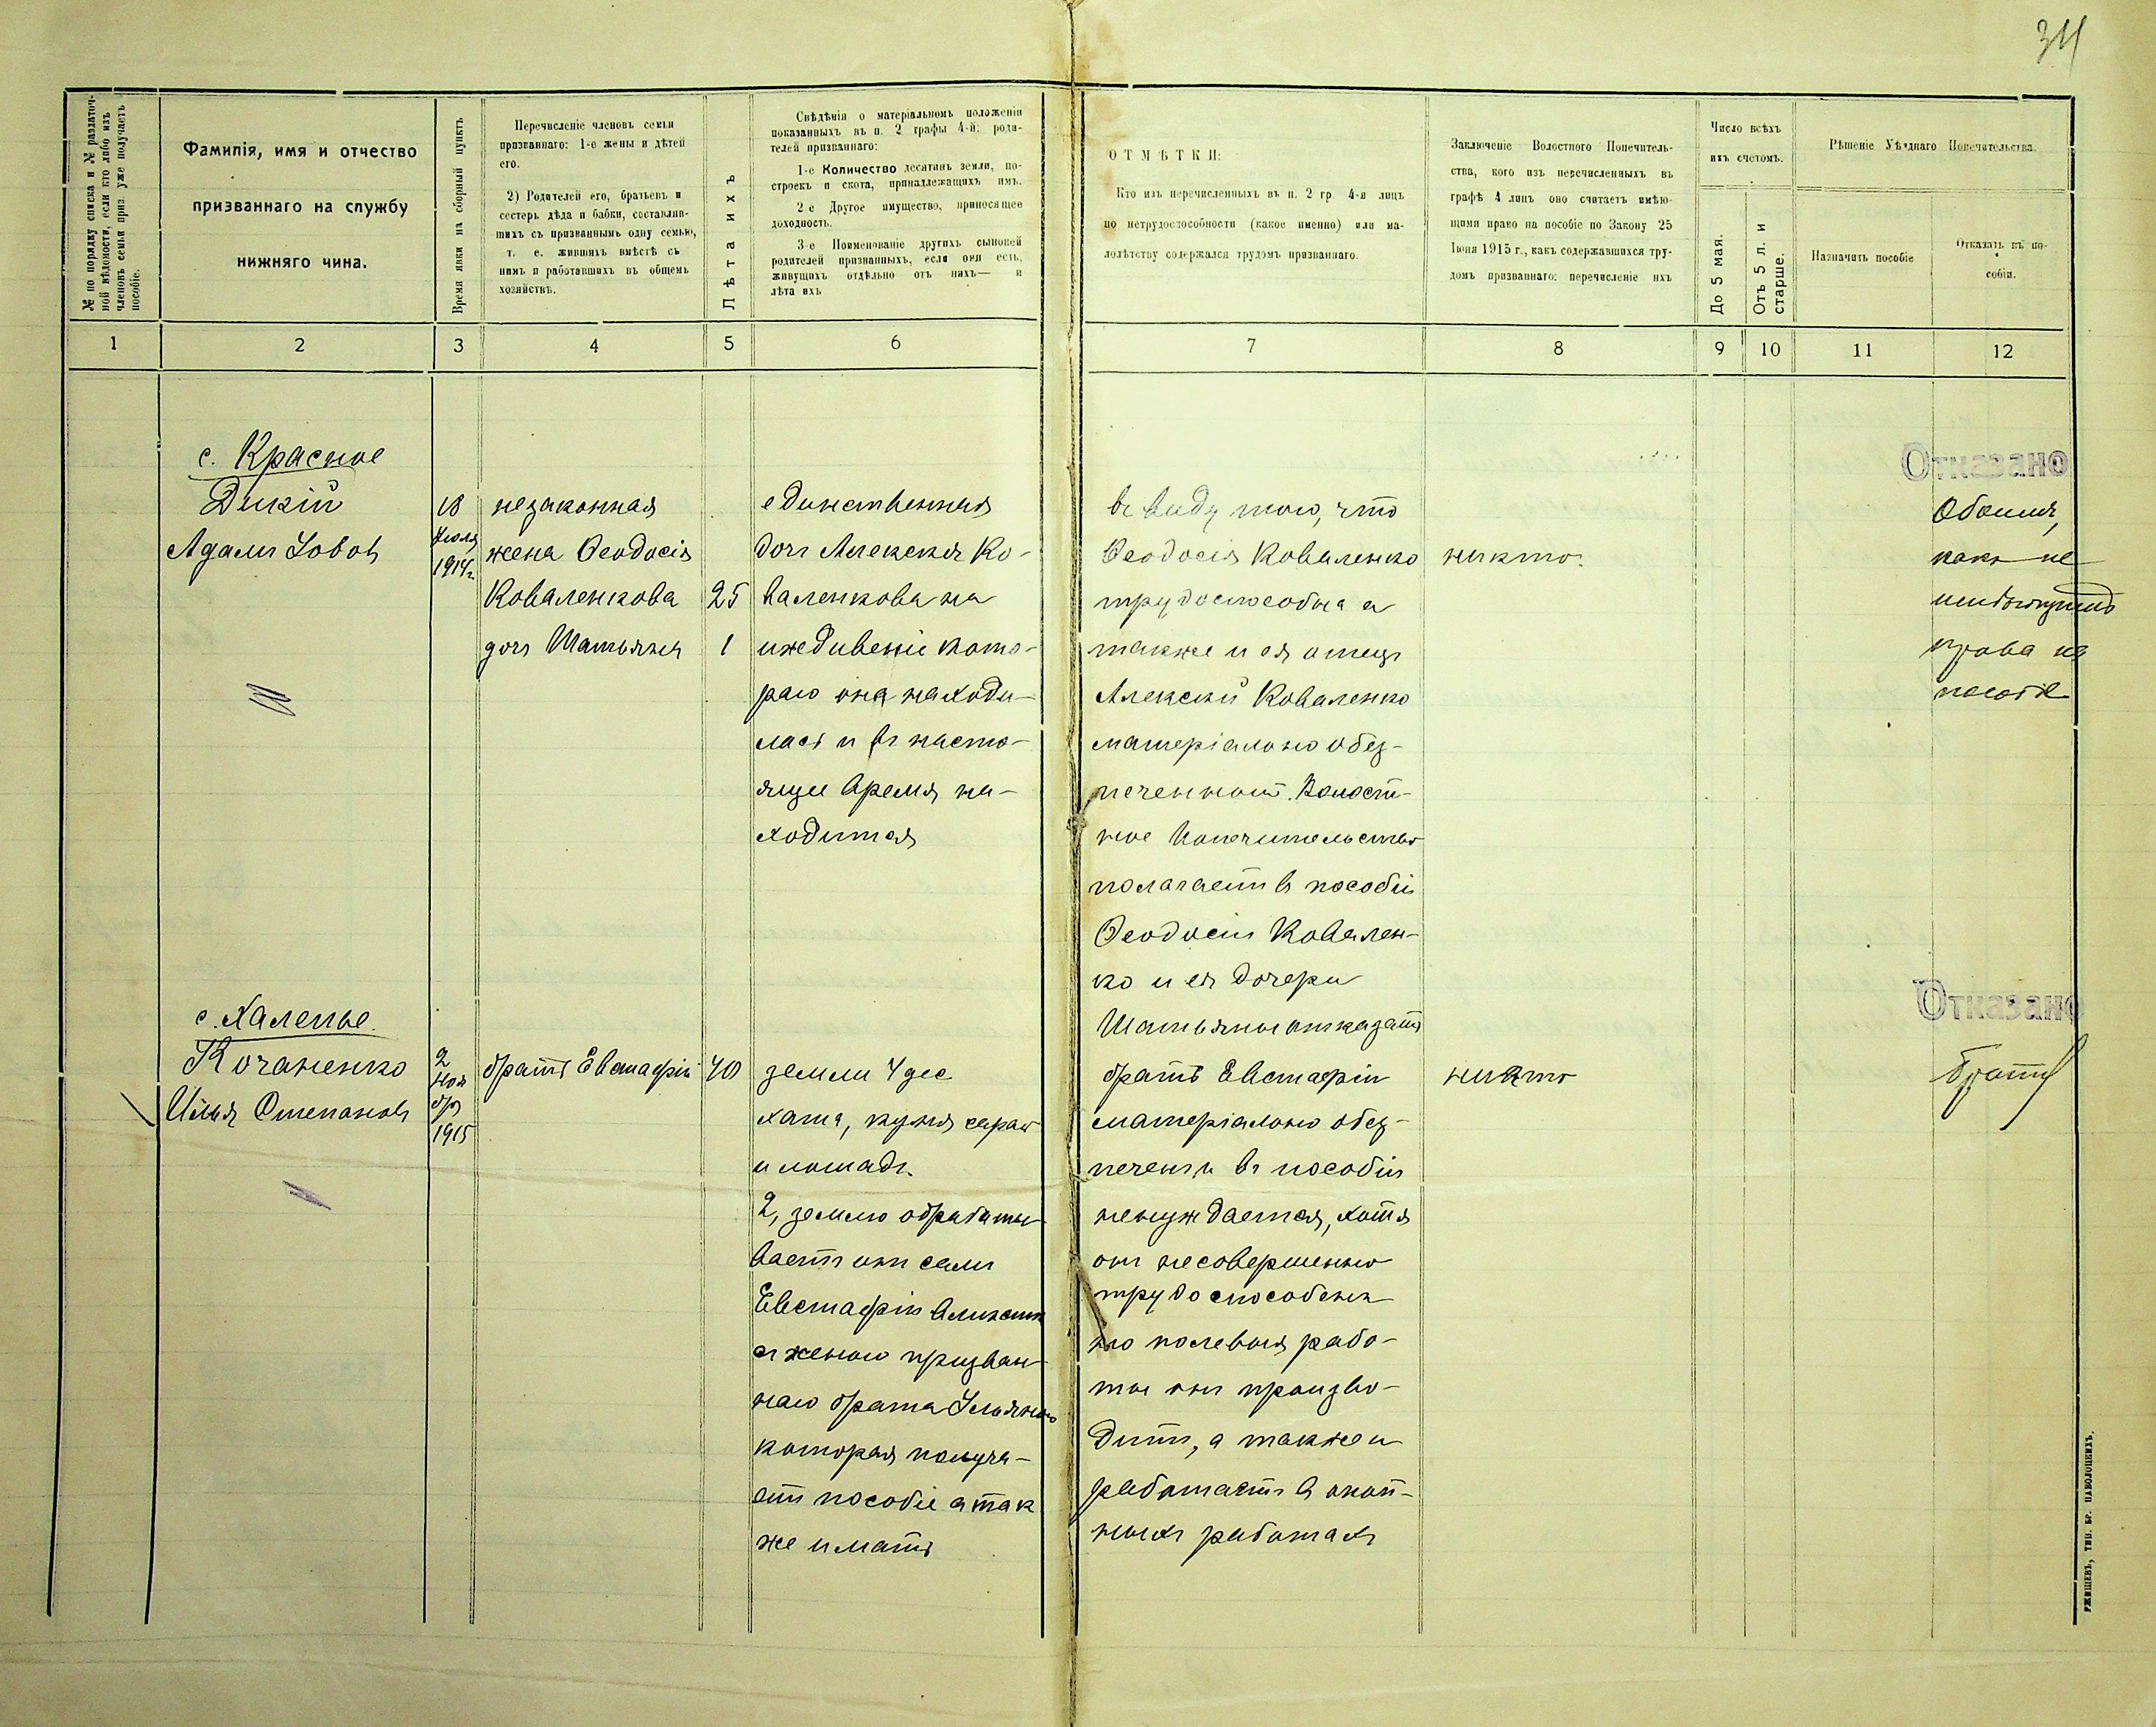 34
№ по порядку списка и № раздаточ-
ной вѣдомости, если кто либо изъ
членовъ семьи приз. уже получаетъ
пособіе.
Фамилія, имя и отчество
призваннаго на службу
нижняго чина.
Время явки на сборный пунктъ
Перечисленіе членовъ семьи
призваннаго: 1-е жены и дѣтей
его.
2) Родителей его, братьевъ и
сестеръ дѣда и бабки, составляв-
шихъ съ призваннымъ одну семью,
т. е. жившихъ вмѣстѣ съ
нимъ и работавшихъ въ общемъ
хозяйствѣ.
Лѣта ихъ
Свѣдѣнія о матеріальномъ положеніи
показанныхъ въ п. 2 графы 4-й: роди-
телей призваннаго:
1-е Количество десятинъ земли, по-
строекъ и скота, принадлежащихъ имъ.
2-е Другое имущество, приносящее
доходность.
3-е Поименованіе другихъ сыновей
родителей призванныхъ, если они есть,
живущихъ отдѣльно отъ нихъ— и
лѣта ихъ
ОТМѢТКИ:
Кто изъ перечисленныхъ въ п. 2 гр. 4-я лицъ
по нетрудоспособности (какое именно) или ма-
лолѣтству содержался трудомъ призваннаго.
Заключеніе Волостного Попечитель-
ства, кого изъ перечисленныхъ въ
графѣ 4 лицъ оно считаетъ имѣю-
щими право на пособіе по Закону 25
Іюня 1915 г., какъ содержавшихся тру-
домъ призваннаго: перечисленіе ихъ
Число всѣхъ
ихъ счетомъ.
До 5 мая.
Отъ 5 л. и
старше.
Рѣшеніе Уѣзднаго Попечительства
Назначить пособіе
Отказать въ по-
собіи.
1 2 3 4 5 6 7 8 9 10 11 12
с. Красное
Дикій
Адамъ Іововъ
18
Іюля
1914г.
незаконная
жена Ѳеодосія
Коваленкова 25
дочь Татьяна 1
единственная
дочь Алексѣя Ко-
валенкова на
иждивеніи кото-
раго она находи-
лась и въ насто-
ящее время на-
ходится
въ виду того, что
Ѳеодосія Коваленко
трудоспособна а
также и ея отецъ
Алексѣй Коваленко
матеріально обез-
печенный. Волост-
ное Попечительство
полагаетъ въ пособіи
Ѳеодосіи Ковален-
ко и ея дочери
Татьяны отказать
никто.
Отказано
Обоимъ,
какъ не
права на
пособіе
с. Халепье.
Кочаненко
Илья Степановъ
2
Ноя
бр
1915
братъ Евстафій 40
земли 4 дес
хата, кухня сарай
и лошадь.
2, землю обрабаты-
ваетъ онъ самъ
Евстафій вмѣстѣ
съ женою призван-
наго брата Ульяною
которая получа-
етъ пособіе а так
же и мать
братъ Евстафій
матеріально обез-
печенъ и въ пособіи
ненуждается, хотя
онъ несовершенно
трудоспособенъ
но полевыя рабо-
ты онъ произво-
дитъ, а также и
работаетъ в окоп-
ныхъ работахъ
никто
Отказано
брату
РЖИЩЕВЪ, ТИП. БР. ПАВОЛОЦКИХЪ.